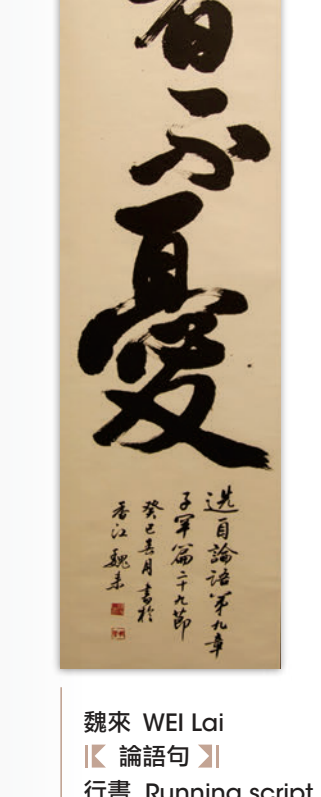 者不憂
选自論語第九章
子罕篇二十九節
癸巳春月書於
香江 魏来
魏來 WEI Lai
論語句
行書 Running script